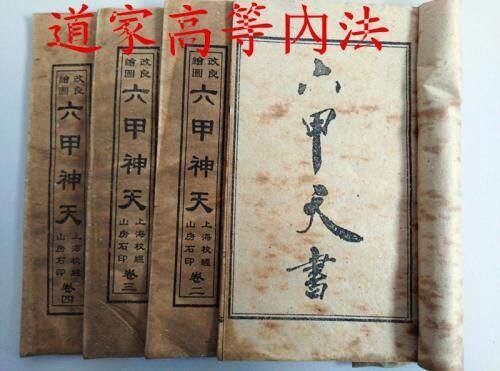 道家高等內法
六甲天書
改良
繪圖
六甲神天
上海校經
山房石印
卷二
改良
繪圖
六甲神天
上海校經
山房石印
卷三
改良
繪圖
六甲神天
上海校經
山房石印
卷四